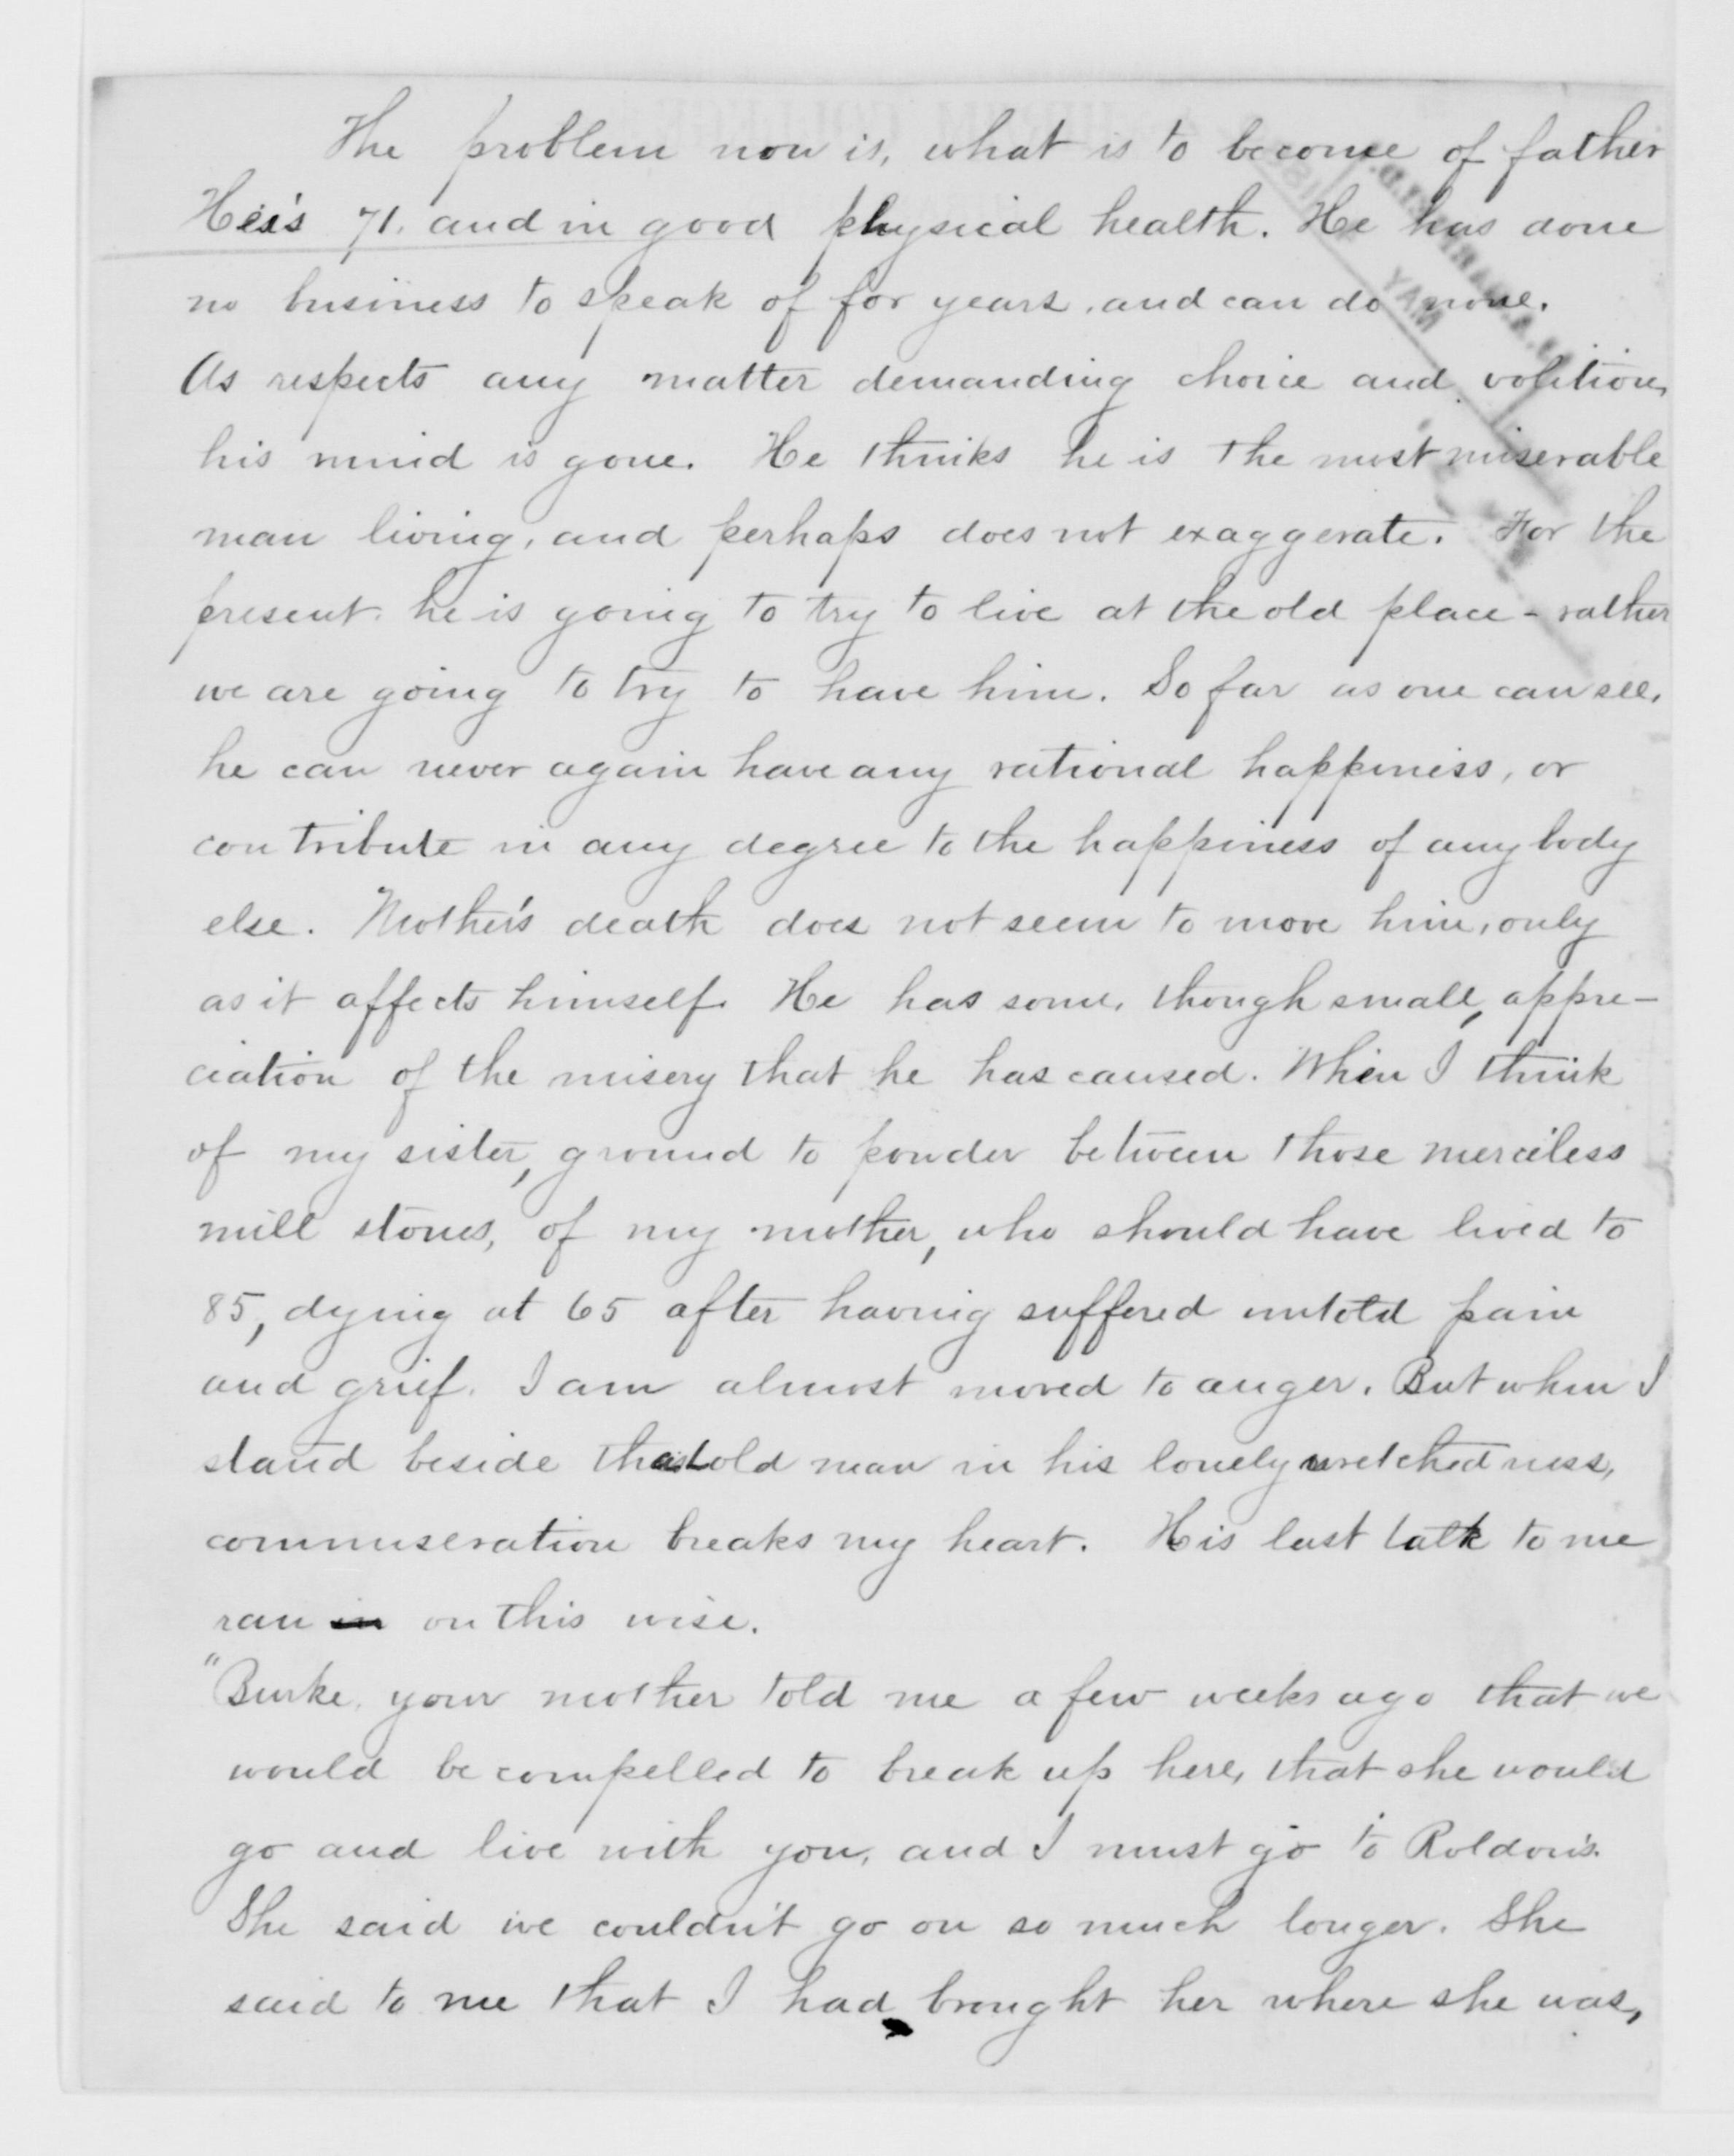 The problem now is, what is to become of father
He is 71. and in good physical health. He has done
no business to speak of for years, and can do none.
As respects any matter demanding choice and volition,
his mind is gone. He thinks he is the most miserable
man living, and perhaps does not exaggerate. For the
present he is going to try to live at the old place - rather
we are going to try to have him. So far as one can see,
he can never again have any rational happiness, or
contribute in any degree to the happiness of anybody
else. Mother's death does not seem to move him, only
as it affects himself. He has some, though small, appre-
ciation of the misery that he has caused. When I think
of my sister, ground to powder between those merciless
mill stones, of my mother, who should have lived to
85, dying at 65 after having suffered untold pain
and grief. I am almost moved to anger. But when I
stand beside that old man in his lonely wretchedness,
commiseration breaks my heart. His last talk to me
ran in on this wise.
"Burke, your mother told me a few weeks ago that we
would be compelled to break up here, that she would
go and live with you, and I must go to Roldon's.
She said we couldn't go on so much longer. She
said to me that I had brought her where she was,